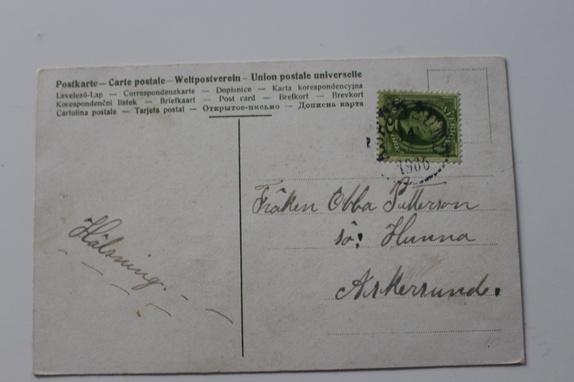 Postkarte – Carte postale – Weltpostverein – Union postale universelle
Levelező-Lap — Correspondenzkarte — Dopisnice — Karta korespondencyjna
Korespondenční lístek — Briefkaart — Post card — Brefkort — Brevkort
Cartolina postale — Tarjeta postal — Открытое-письмо — Дописна карта
1906
Fröken Ebba Petterson
Hunna
Askersund.
Hälsning.